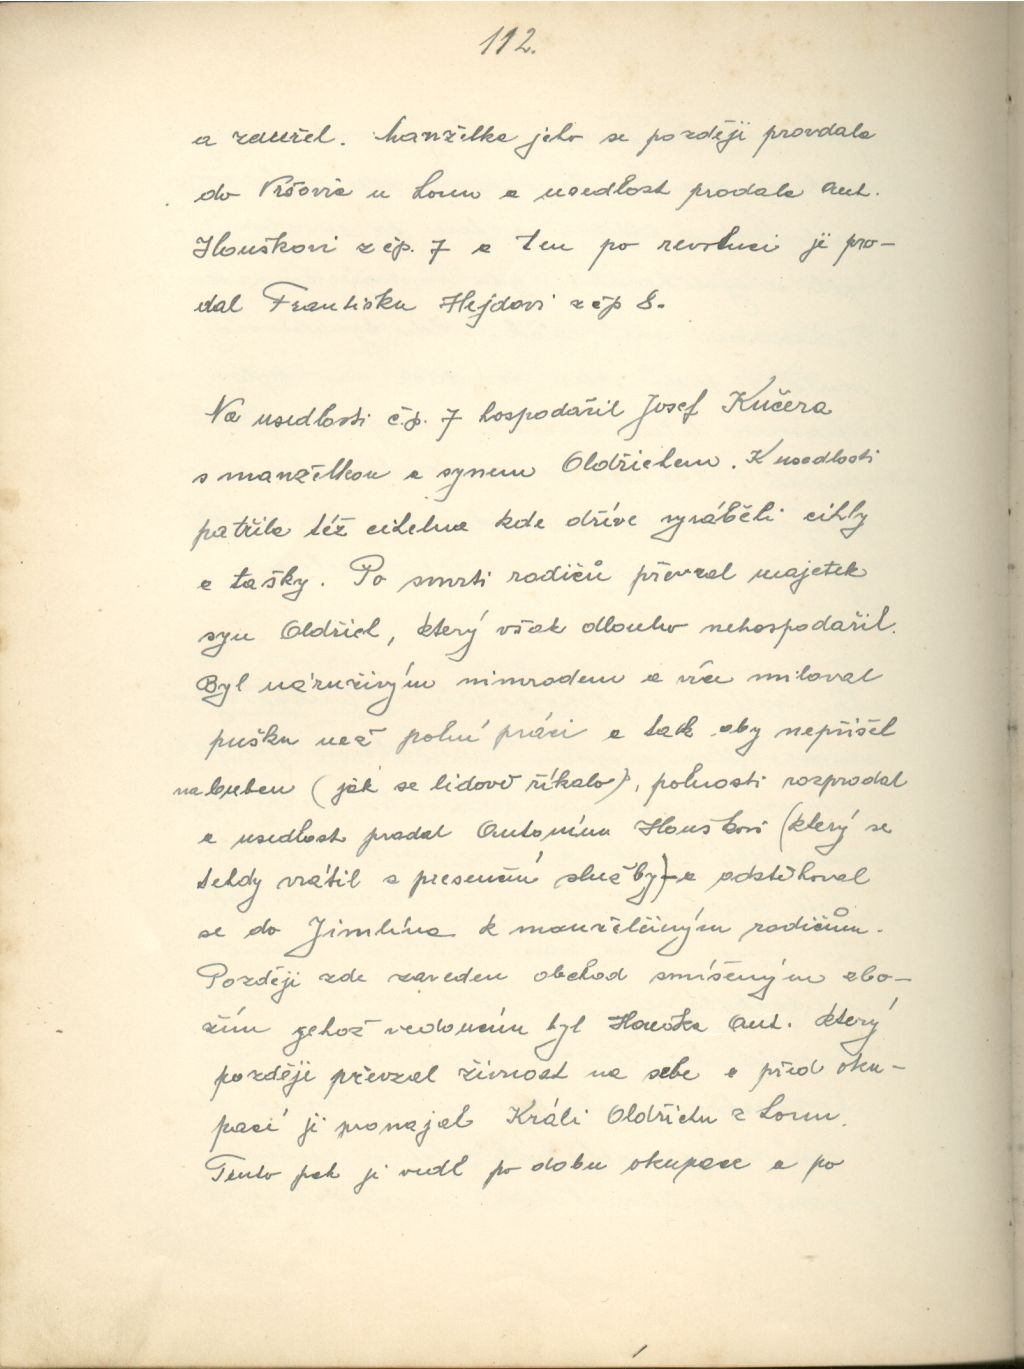 112.
a zemřel. Manželka jeho se později provdala
do Vršovic u Loun a usedlost prodala Ant.
Houškovi z čp. 7 a ten po revoluci ji pro-
dal Františku Hejdovi z čp 8.
Na usedlosti č.p. 7 hospodařil Josef Kučera
s manželkou a synem Oldřichem. K usedlosti
patřila též cihelna kde dříve vyráběli cihly
a tašky. Po smrti rodičů převzal majetek
syn Oldřich, který však dlouho nehospodařil.
Byl náruživým nimrodem a více miloval
pušku než polní práci a tak aby nepřišel
na buben (jak se lidově říkalo), polnosti rozprodal
a usedlost prodal Antonínu Houškovi (který se
tehdy vrátil z presenční služby) a odstěhoval
se do Jimlína k manželčiným rodičům.
Později zde zaveden obchod smíšeným zbo-
žím jehož vedoucím byl Houška Ant. který
později převzal živnost na sebe a před oku-
pací ji pronajal Králi Oldřichu z Loun.
Tento pak ji vedl po dobu okupace a po